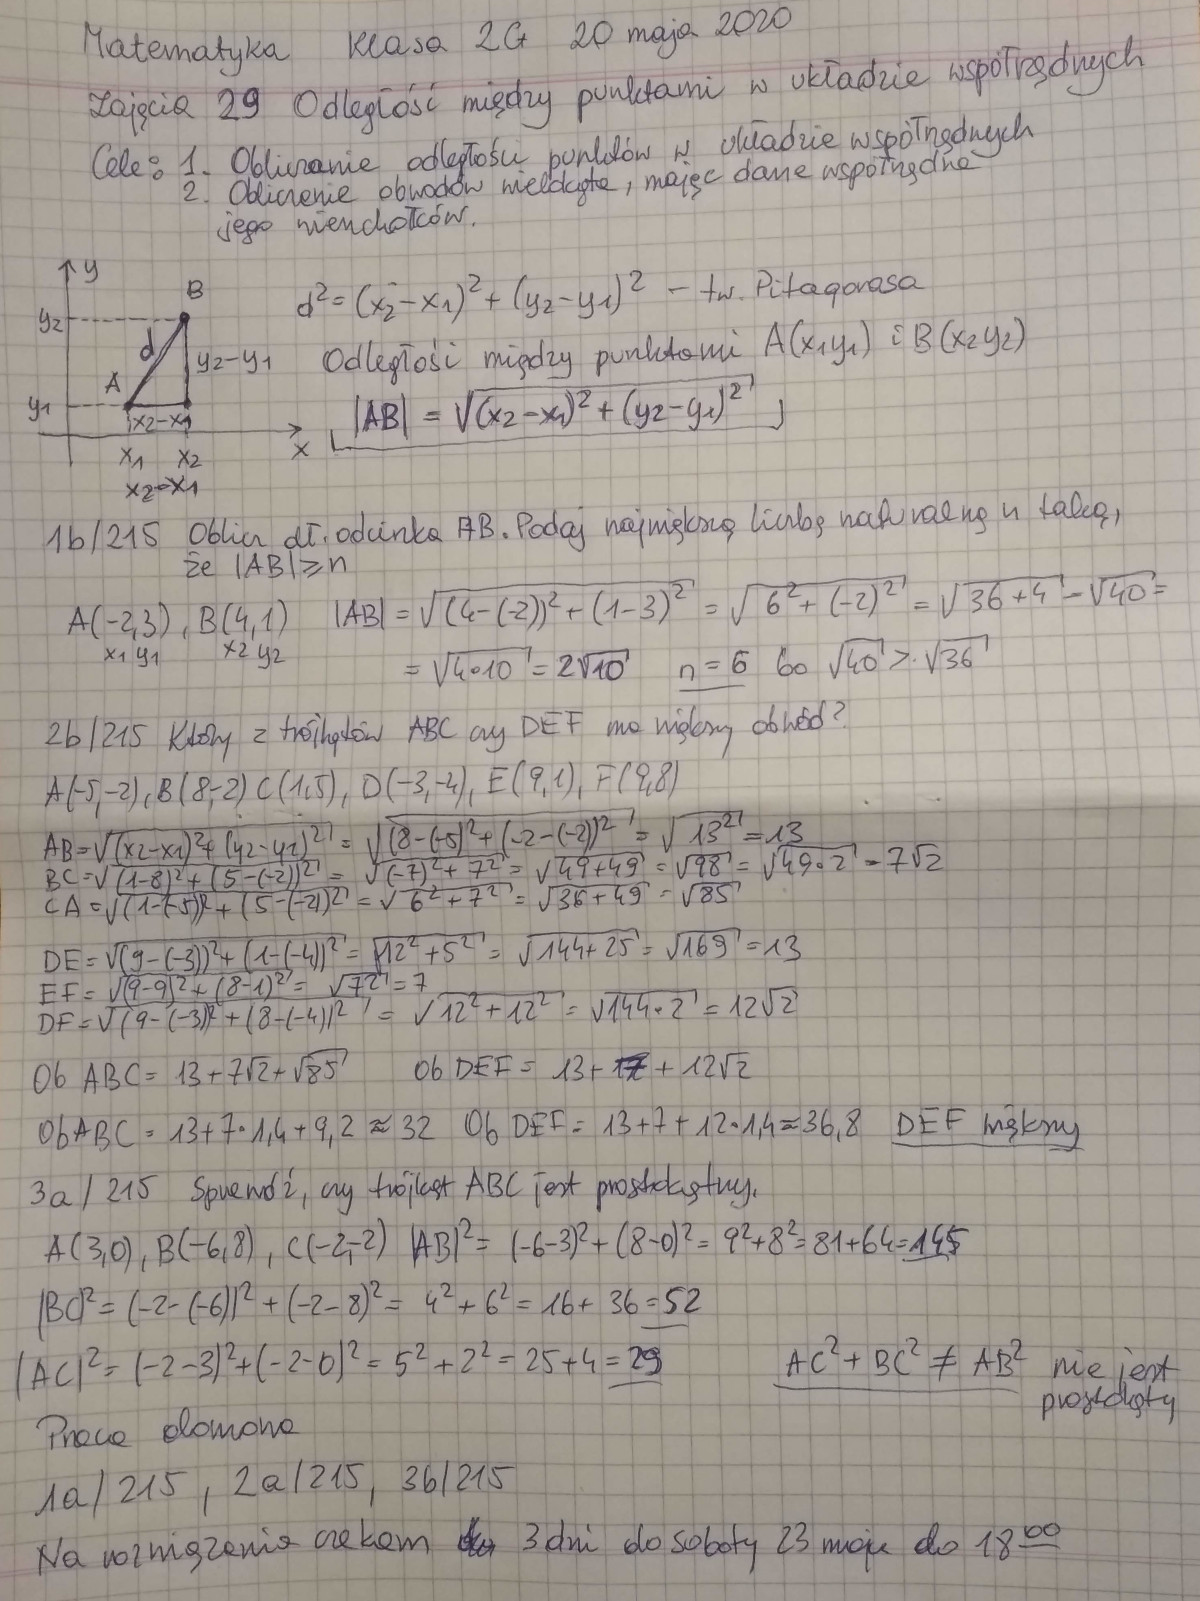 Matematyka Klasa 2G 20 maja 2020
Zajęcia 29 Odległość między punktami w układzie współrzędnych
Cele: 1. Obliczanie odległości punktów w układzie współrzędnych
2. Obliczenie obwodów wielokąta, mając dane współrzędne
jego wierzchołków.
y
B
y2
d
y2-y1
A
y1
x2-x1
x
x1 x2
x2-x1
d²=(x2-x1)²+(y2-y1)² - tw. Pitagorasa
Odległości między punktami A(x1y1) i B(x2y2)
|AB| = √(x2-x1)²+(y2-y1)²
1b/215 Oblicz dł. odcinka AB. Podaj największą liczbę naturalną n taką,
że |AB|≥n
A(-2,3), B(4,1) |AB|=√(4-(-2))²+(1-3)² = √6²+(-2)² = √36+4 = √40 =
x1 y1 x2 y2
= √4•10 = 2√10 n=6 bo √40 > √36
2b/215 Który z trójkątów ABC czy DEF ma większy obwód?
A(-5,-2), B(8,-2) C(1,5), D(-3,-4), E(9,1), F(9,8)
AB=√(x2-x1)²+(y2-y1)² = √(8-(-5)²+(-2-(-2))² = √13² = 13
BC=√(1-8)²+(5-(-2))² = √(-7)²+7² = √49+49 = √98 = √49•2 = 7√2
CA=√(1-(-5))²+(5-(-2))² = √6²+7² = √36+49 = √85
DE=√(9-(-3))²+(1-(-4))² = √12²+5² = √144+25 = √169 = 13
EF=√(9-9)²+(8-1)² = √7² = 7
DF=√(9-(-3))²+(8-(-4))² = √12²+12² = √144•2 = 12√2
Ob ABC = 13+7√2+√85 Ob DEF = 13+7+12√2
Ob ABC = 13+7•1,4+9,2 ≈ 32 Ob DEF = 13+7+12•1,4≈36,8 DEF większy
3a/215 Sprawdź, czy trójkąt ABC jest prostokątny.
A(3,0), B(-6,8), C(-2,-2) |AB|²= (-6-3)²+(8-0)²= 9²+8²=81+64=145
|BC|²= (-2-(-6))²+(-2-8)²= 4²+6²=16+36=52
|AC|²= (-2-3)²+(-2-0)²= 5²+2²=25+4=29 AC²+BC² ≠ AB² nie jest
prostokątny
Praca domowa
1a/215, 2a/215, 3b/215
Na rozwiązania czekam 3 dni do soboty 23 maja do 18⁰⁰